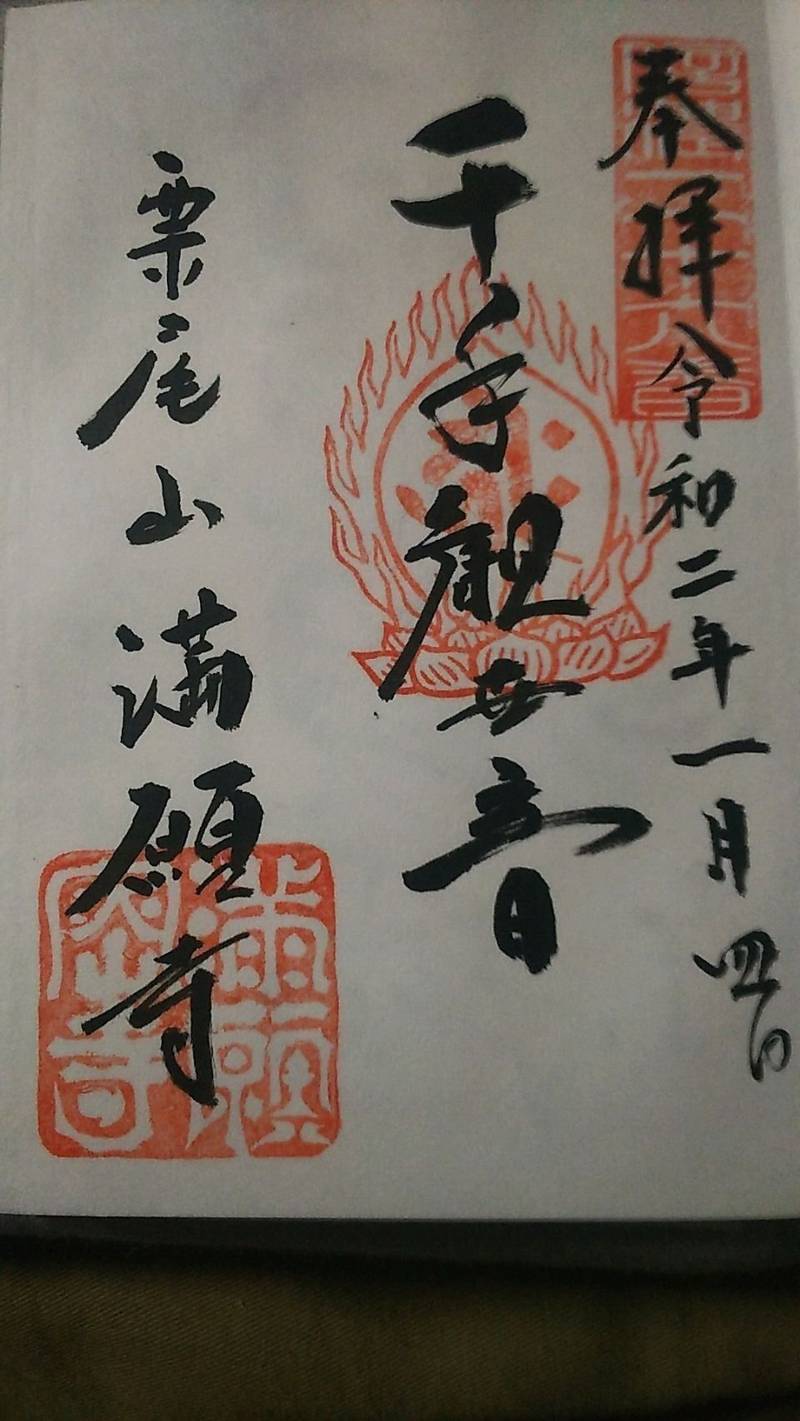 奉拝 令和二年一月四日
千手観世音
栗尾山 満願寺
満願
密寺